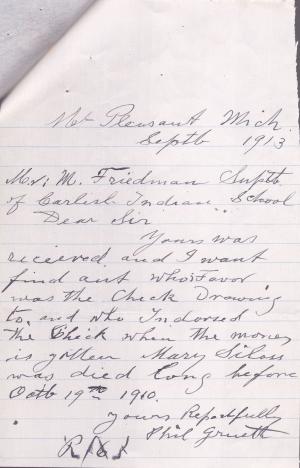 Mt Pleasant Mich
Septb 1913
Mr; M. Friedman Suptb
of Carlish Indian School
Dear Sir
Yours was
received and I want
find aut who's Favor
was the Check Drawing
to, and who Indorsed
the Check when the money
is gotten Mary Silas
was died long before
Octb 19th 1910.
yours Repectfully
Phil Gruett